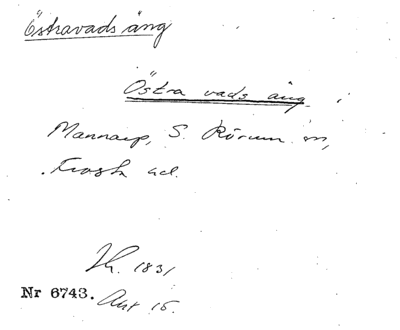 Östravads äng
Östra vads äng
Mannarp, S. Rörum sn,
Frosta hd.
Sk. 1831
Nr 6743. Akt 15.